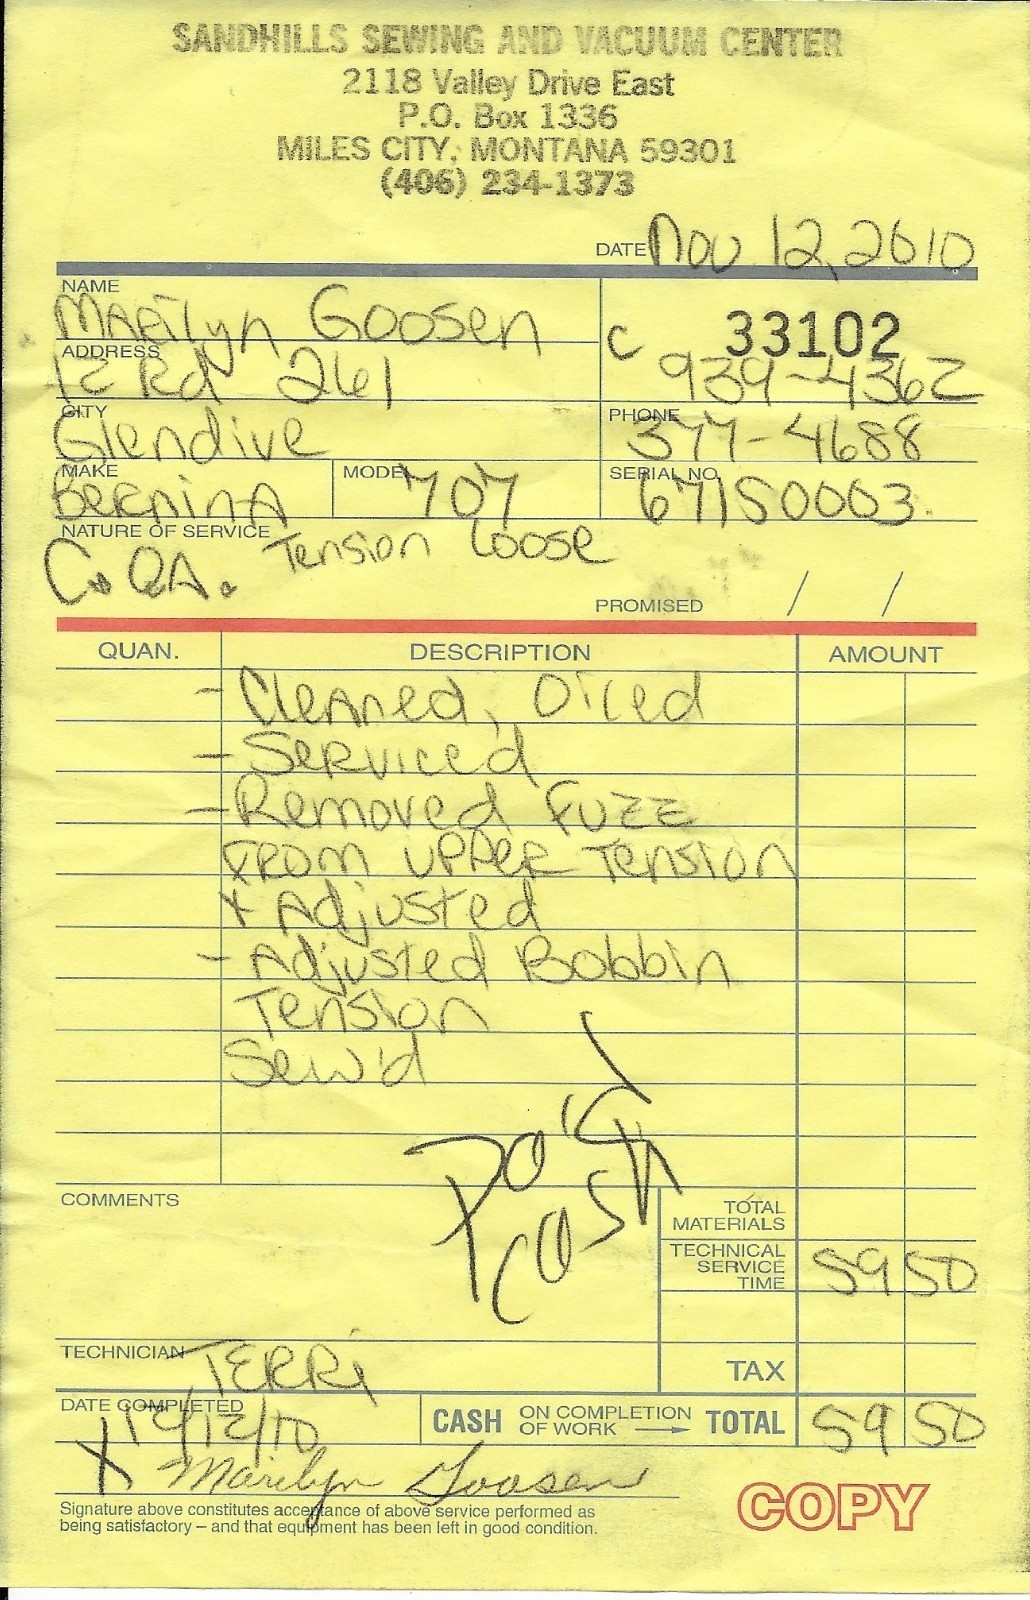 SANDHILLS SEWING AND VACUUM CENTER
2118 Valley Drive East
P.O. Box 1336
MILES CITY, MONTANA 59301
(406) 234-1373
DATE Nov 12, 2010
NAME
Marilyn Goosen
C 33102
ADDRESS
12 Rd 261
939-4362
CITY
Glendive
PHONE
377-4688
MAKE
Bernina
MODEL 707
SERIAL NO.
67150003.
NATURE OF SERVICE
C. OA. Tension Loose
PROMISED / /
QUAN. DESCRIPTION AMOUNT
- Cleaned, Oiled
- Serviced
- Removed Fuzz
From Upper Tension
+ Adjusted
- Adjusted Bobbin
Tension
Sew'd
Pd
Cash
COMMENTS
TOTAL
MATERIALS
TECHNICAL
SERVICE
TIME
59 50
TECHNICIAN TERRi
TAX
DATE COMPLETED
12/10
CASH ON COMPLETION OF WORK TOTAL 59 50
X Marilyn Goosen
Signature above constitutes acceptance of above service performed as
being satisfactory – and that equipment has been left in good condition.
COPY